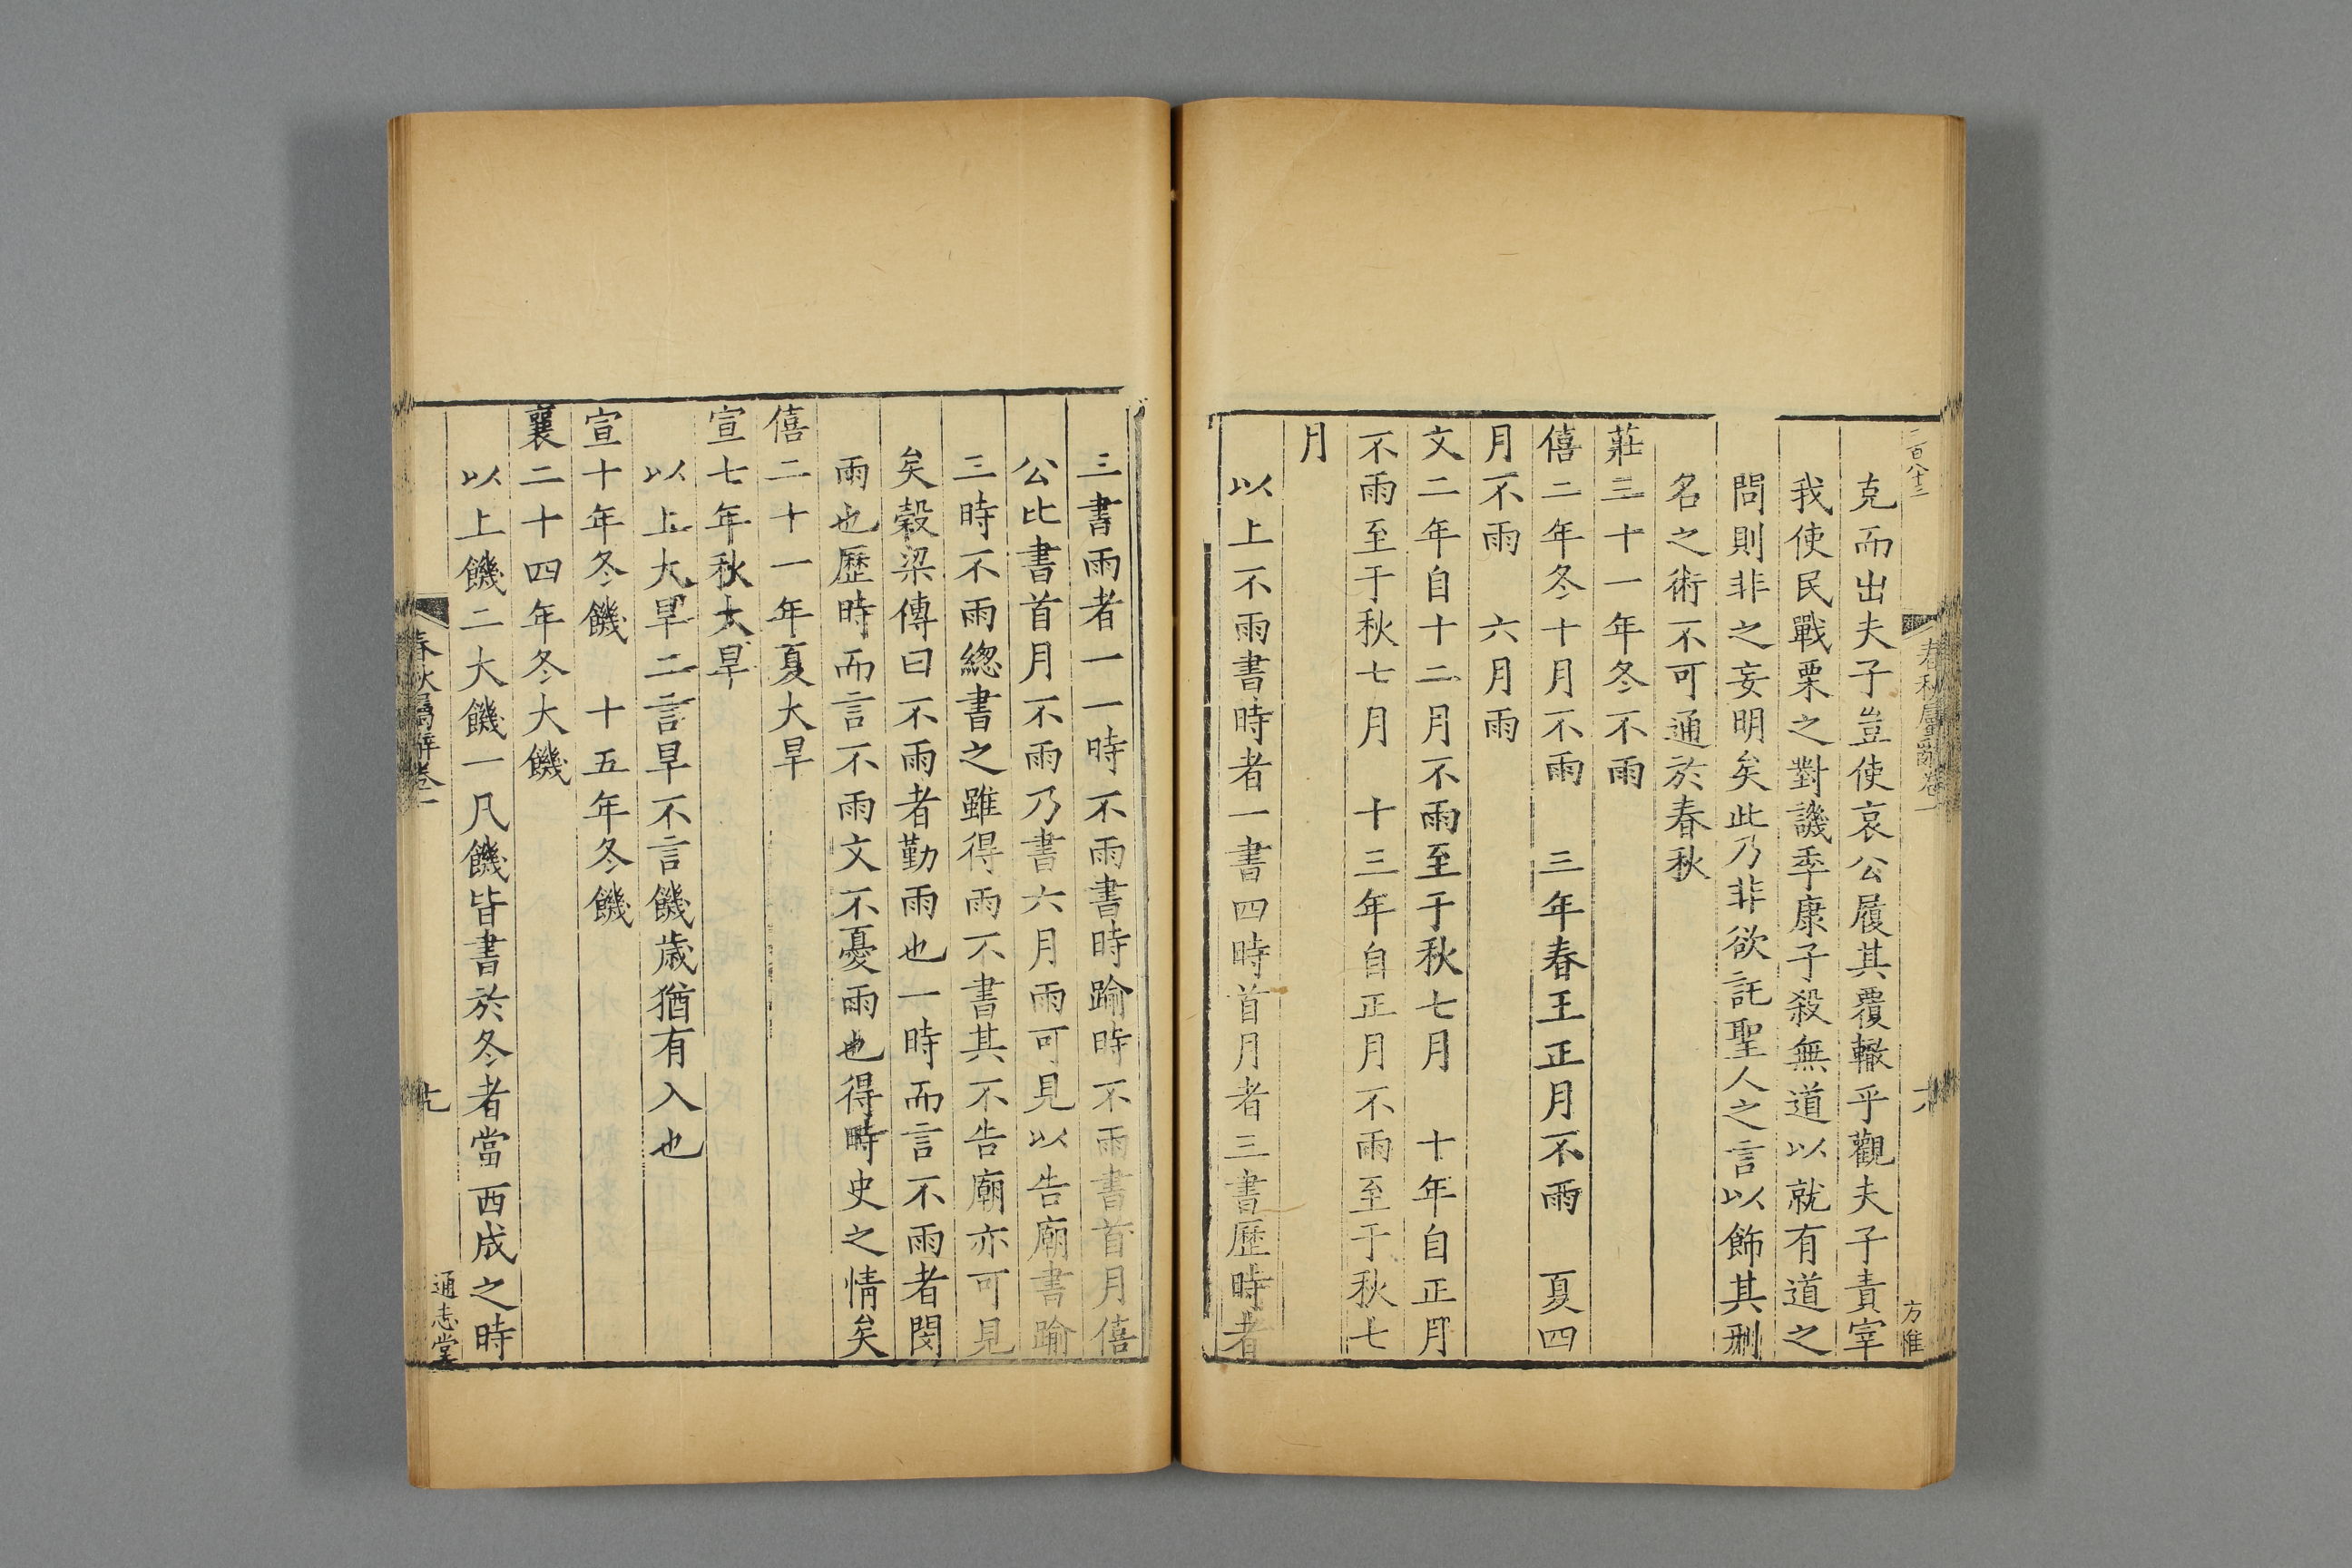 二百八十二
方惟
克而出夫子豈使哀公履其覆轍乎觀夫子責宰
我使民戰栗之對譏季康子殺無道以就有道之
問則非之妄明矣此乃非欲託聖人之言以飾其刑
名之術不可通於春秋
莊三十一年冬不雨
僖二年冬十月不雨　三年春王正月不雨　夏四
月不雨　六月雨
文二年自十二月不雨至于秋七月　十年自正月
不雨至于秋七月　十三年自正月不雨至于秋七
月
以上不雨書時者一書四時首月者三書歷時者
三書雨者一一時不雨書時踰時不雨書首月僖
公比書首月不雨乃書六月雨可見以告廟書踰
三時不雨總書之雖得雨不書其不告廟亦可見
矣穀梁傳曰不雨者勤雨也一時而言不雨者閔
雨也歷時而言不雨文不憂雨也得時史之情矣
僖二十一年夏大旱
宣七年秋大旱
以上大旱二言旱不言饑歲猶有入也
宣十年冬饑　十五年冬饑
襄二十四年冬大饑
以上饑二大饑一凡饑皆書於冬者當西成之時
春秋屬辭卷一
通志堂